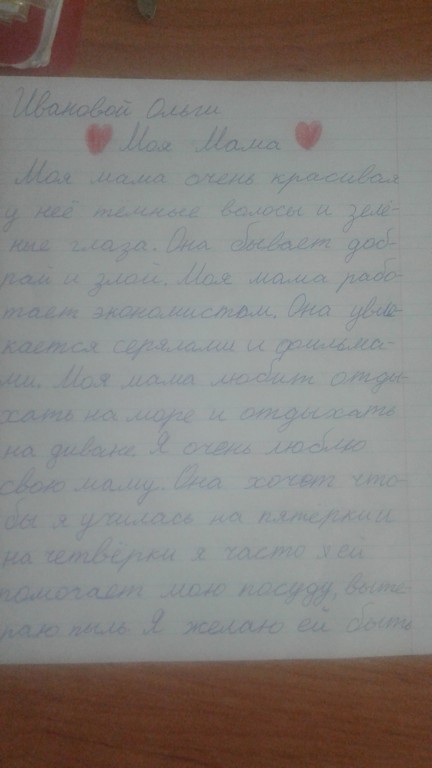 Ивановой Ольги
Моя Мама
Моя мама очень красивая
у неё темные волосы и зелё-
ные глаза. Она бывает доб-
рай и злой. Моя мама рабо-
тает экономистом. Она увле-
кается серялами и фильма-
ми. Моя мама любит отды-
хать на море и отдыхать
на диване Я очень люблю
свою маму. Она хочот что-
бы я училась на пятерки и
на четвёрки я часто ей
помогает мою посуду, выте-
раю пыль Я желаю ей быть